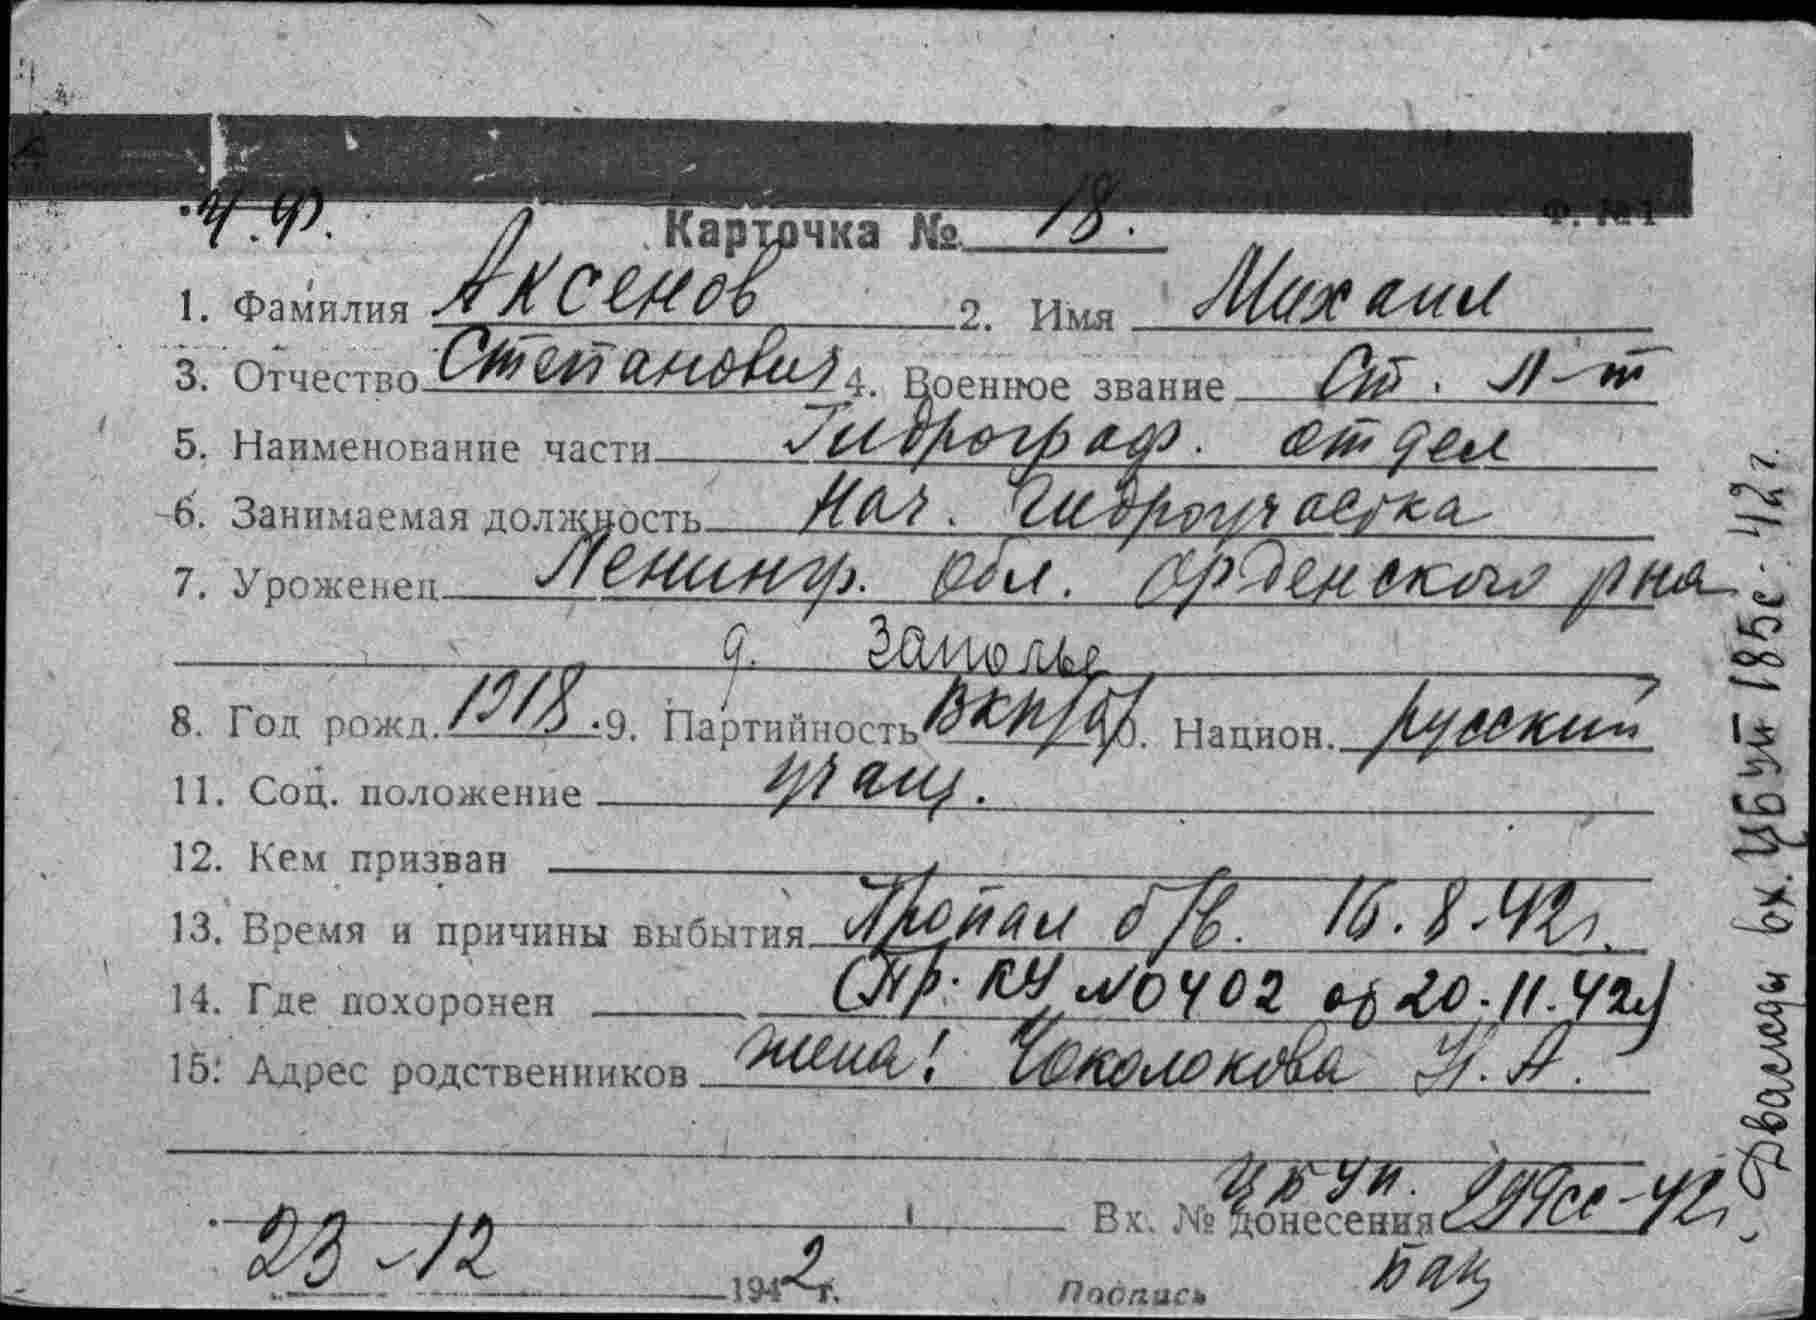 Ч.Ф.
Ф. №1
Карточка № 18.
1. Фамилия Аксенов 2. Имя Михаил
3. Отчество Степанович 4. Военное звание Ст. Л-т
5. Наименование части Гидрограф. отдел
6. Занимаемая должность Нач. Гидроучастка
7. Уроженец Ленингр. обл. Орденского рна
д. Заполье
8. Год рожд. 1918. 9. Партийность ВКП/б/ 10. Национ. русский
11. Соц. положение учащ.
12. Кем призван
13. Время и причины выбытия Пропал б/в. 16.8.42г.
14. Где похоронен (Пр. КУ №0402 от 20.11.42г)
15. Адрес родственников жена: Чоколокова Н. А.
Вх. № донесения ЦБУП. 299сс-42г
23-12 1942г. Подпись Бац
Дважды вх. ЦБУП 185с-42г.